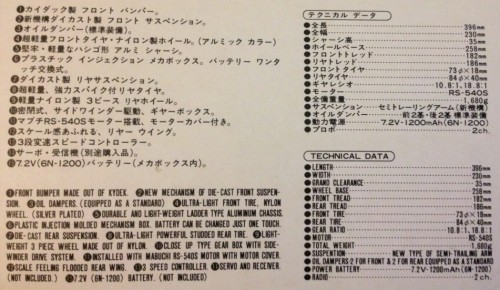 ❶カイダック製 フロント バンパー。
❷新機構ダイカスト製 フロント サスペンション。
❸オイルダンパー(標準装備)。
❹超軽量フロントタイヤ・ナイロン製ホイール。(アルミック カラー)
❺堅牢・軽量なハシゴ形 アルミ シャーシ。
❻プラスチック インジェクション メカボックス。バッテリー ワンタ
ッチ交換式。
❼ダイカスト製 リヤサスペンション。
❽超軽量、強力スパイク付リヤタイヤ。
❾超軽量ナイロン製 3ピース リヤホイール。
❿密閉式、サイドワインダー駆動、ギヤーボックス。
⓫マブチRS-540Sモーター搭載、モーターカバー付き。
⓬スケール感あふれる、リヤー ウイング。
⓭3段変速スピードコントローラー。
⓮サーボ・受信機(別途購入品)。
⓯7.2V(6N-1200)バッテリー(メカボックス内)。
❶FRONT BUMPER MADE OUT OF KYDEX. ❷NEW MECHANISM OF DIE-CAST FRONT SUSPEN-
SION. ❸OIL DAMPERS (EQUIPPED AS A STANDARD) ❹ULTRA-LIGHT FRONT TIRE, NYLON
WHEEL. (SILVER PLATED) ❺DURABLE AND LIGHT-WEIGHT LADDER TYPE ALUMINIUM CHASSIS.
❻PLASTIC INJECTION MOLDED MECHANISM BOX. BATTERY CAN BE CHANGED JUST ONE TOUCH.
❼DIE-CAST REAR SUSPENSION. ❽ULTRA-LIGHT POWERFUL STUDDED REAR TIRE. ❾LIGHT-
WEIGHT 3 PIECE WHEEL MADE OUT OF NYLON. ❿CLOSE UP TYPE GEAR BOX WITH SIDE-
WINDER DRIVE SYSTEM. ⓫INSTALLED WITH MABUCHI RS-540S MOTOR WITH MOTOR COVER.
⓬SCALE FEELING FLOODED REAR WING. ⓭3 SPEED CONTROLLER. ⓮SERVO AND RECEIVER
(NOT INCLUDED.) ⓯7.2V (6N-1200) BATTERY. (NOT INCLUDED)
テクニカル データ
●全長 396mm
●全幅 230mm
●シャーシ高 35mm
●ホイールベース 258mm
●フロントトレッド 182mm
●リヤトレッド 186mm
●フロントタイヤ 73φ×18mm
●リヤタイヤ 84φ×40mm
●ギヤレシオ 10.8:1、18.1:1
●モーター RS-540S
●全備重量 1,680g
●サスペンション セミトレーリングアーム(新機構)
●オイルダンパー 前2基・後2基 標準装備
●動力電源 7.2V-1200mAh(6N-1200)
●プロポ 2ch.
TECHNICAL DATA
●LENGTH 396mm
●WIDTH 230mm
●GRAND CLEARANCE 35mm
●WHEEL BASE 258mm
●FRONT TREAD 182mm
●REAR TREAD 186mm
●FRONT TIRE 73φ×18mm
●REAR TIRE 84φ×40mm
●GEAR RATIO 10.8:1、18.1:1
●MOTOR RS-540S
●TOTAL WEIGHT 1,680g
●SUSPENSION NEW TYPE OF SEMI-TRAILING ARM
●OIL DAMPERS 2 FOR FRONT & 2 FOR REAR EQUIPPED AS A STANDARD
●POWER BATTERY 7.2V-1200mAh (6N-1200)
●RADIO 2ch.